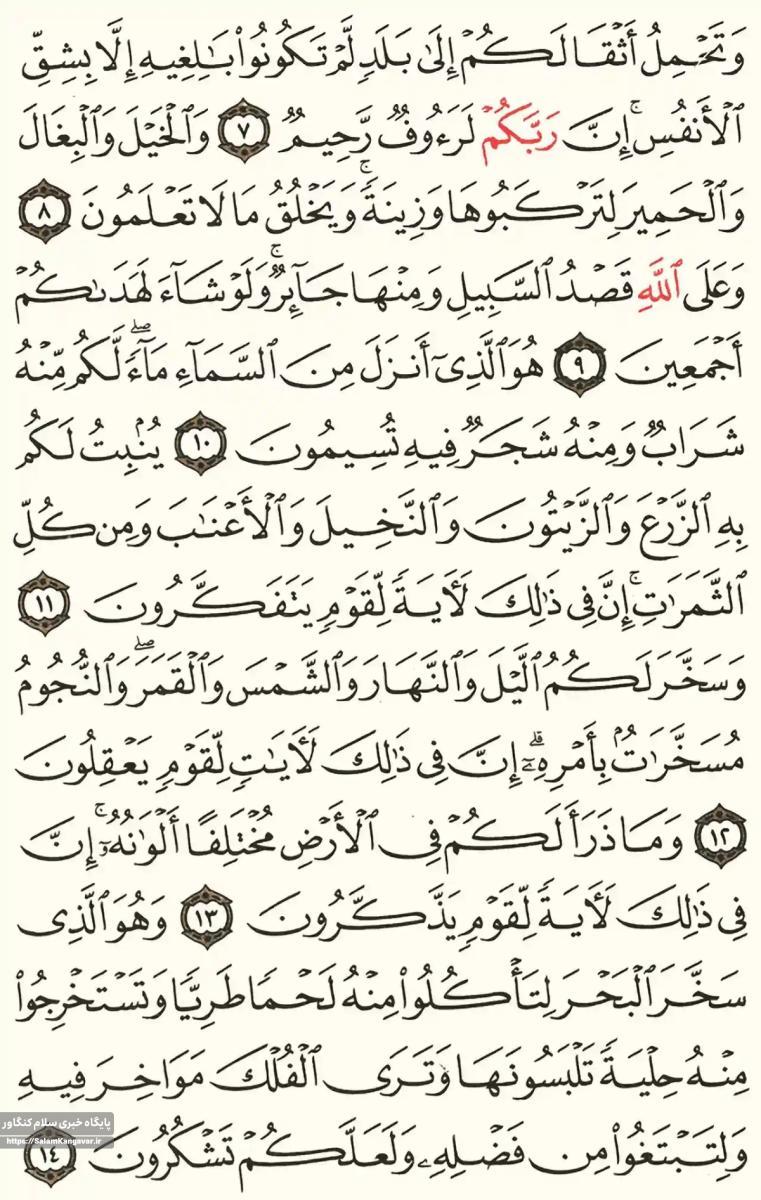 وَتَحْمِلُ أَثْقَالَكُمْ إِلَىٰ بَلَدٍ لَّمْ تَكُونُوا۟ بَٰلِغِيهِ إِلَّا بِشِقِّ
ٱلْأَنفُسِ ۚ إِنَّ رَبَّكُمْ لَرَءُوفٌ رَّحِيمٌ ٧ وَٱلْخَيْلَ وَٱلْبِغَالَ
وَٱلْحَمِيرَ لِتَرْكَبُوهَا وَزِينَةً ۚ وَيَخْلُقُ مَا لَا تَعْلَمُونَ ٨
وَعَلَى ٱللَّهِ قَصْدُ ٱلسَّبِيلِ وَمِنْهَا جَآئِرٌ ۚ وَلَوْ شَآءَ لَهَدَىٰكُمْ
أَجْمَعِينَ ٩ هُوَ ٱلَّذِىٓ أَنزَلَ مِنَ ٱلسَّمَآءِ مَآءً ۖ لَّكُم مِّنْهُ
شَرَابٌ وَمِنْهُ شَجَرٌ فِيهِ تُسِيمُونَ ١٠ يُنۢبِتُ لَكُم
بِهِ ٱلزَّرْعَ وَٱلزَّيْتُونَ وَٱلنَّخِيلَ وَٱلْأَعْنَٰبَ وَمِن كُلِّ
ٱلثَّمَرَٰتِ ۚ إِنَّ فِى ذَٰلِكَ لَءَايَةً لِّقَوْمٍ يَتَفَكَّرُونَ ١١
وَسَخَّرَ لَكُمُ ٱلَّيْلَ وَٱلنَّهَارَ وَٱلشَّمْسَ وَٱلْقَمَرَ ۖ وَٱلنُّجُومُ
مُسَخَّرَٰتٌۢ بِأَمْرِهِۦٓ ۗ إِنَّ فِى ذَٰلِكَ لَءَايَٰتٍ لِّقَوْمٍ يَعْقِلُونَ
١٢ وَمَا ذَرَأَ لَكُمْ فِى ٱلْأَرْضِ مُخْتَلِفًا أَلْوَٰنُهُۥٓ ۗ إِنَّ
فِى ذَٰلِكَ لَءَايَةً لِّقَوْمٍ يَذَّكَّرُونَ ١٣ وَهُوَ ٱلَّذِى
سَخَّرَ ٱلْبَحْرَ لِتَأْكُلُوا۟ مِنْهُ لَحْمًا طَرِيًّا وَتَسْتَخْرِجُوا۟
مِنْهُ حِلْيَةً تَلْبَسُونَهَا وَتَرَى ٱلْفُلْكَ مَوَاخِرَ فِيهِ
وَلِتَبْتَغُوا۟ مِن فَضْلِهِۦ وَلَعَلَّكُمْ تَشْكُرُونَ ١٤
پایگاه خبری سلام کنگاور
https://SalamKangavar.ir